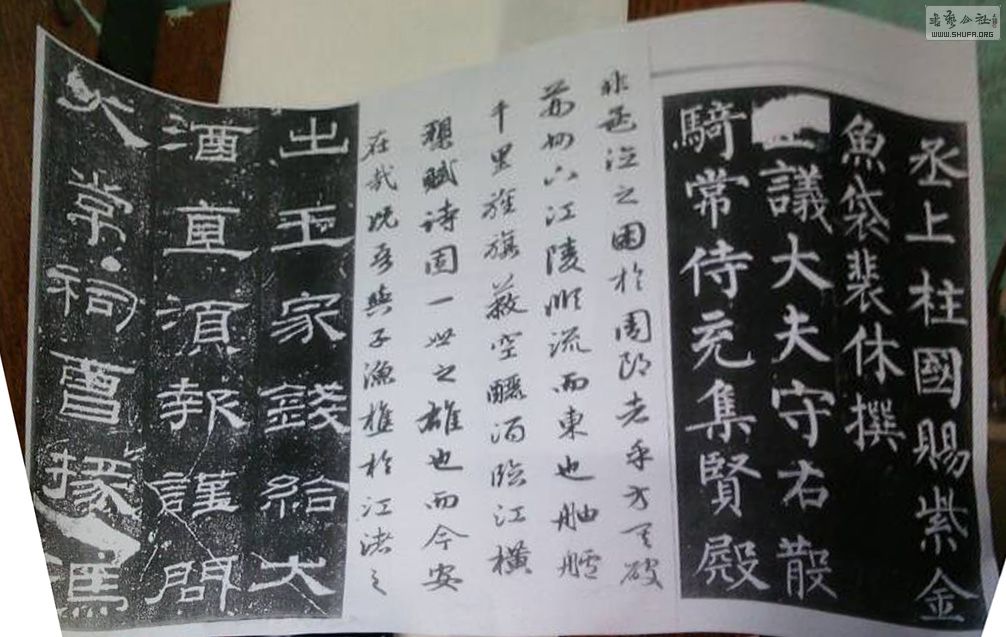 丞上柱國賜紫金
魚袋裴休撰
議大夫守右散
騎常侍充集賢殿
非孟德之困於周郎者乎方其破
荊州下江陵順流而東也舳艫
千里旌旗蔽空釃酒臨江橫
槊賦詩固一世之雄也而今安
在哉況吾與子漁樵於江渚之
出王家錢給大
酒直須報謹問
大常祠曹掾馮
书艺公社
WWW.SHUFA.ORG